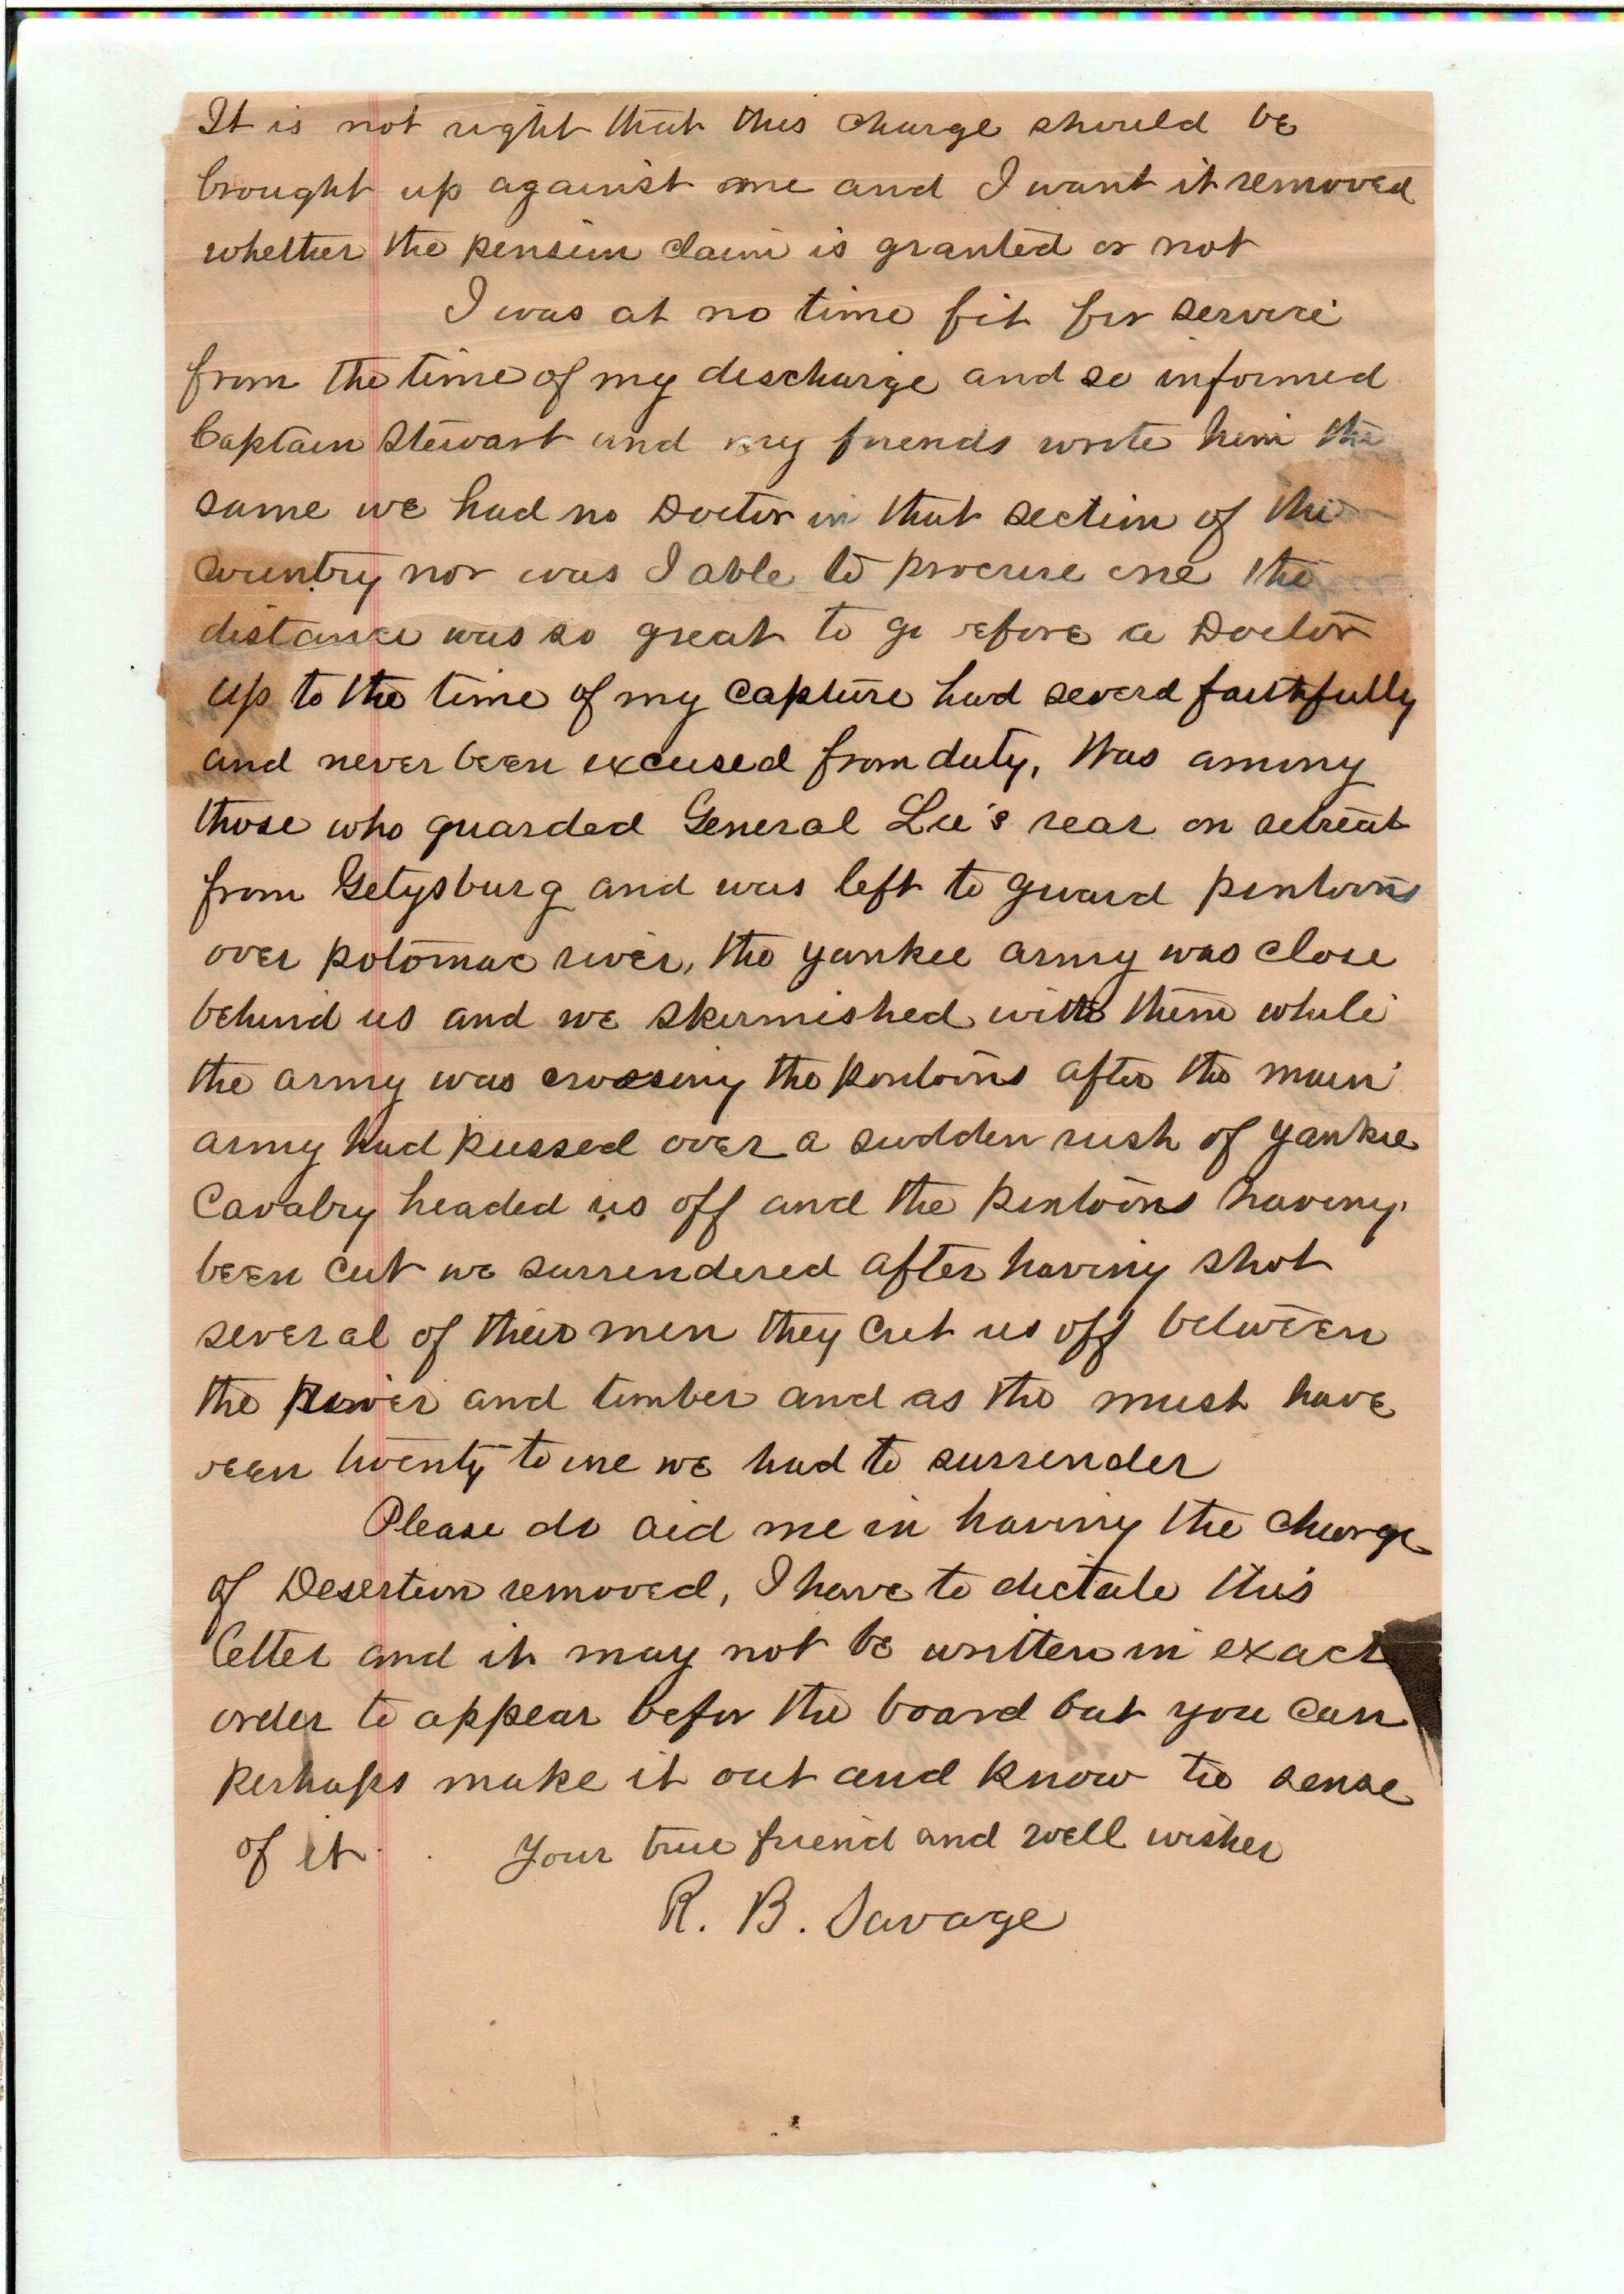 It is not right that this charge should be
brought up against me and I want it removed
whether the pension claim is granted or not
I was at no time fit for service
from the time of my discharge and so informed
Captain Stewart and my friends wrote him the
same we had no Doctor in that section of the
country nor was I able to procure one the
distance was so great to go before a Doctor
up to the time of my capture had severd faithfully
and never been excused from duty, Was among
those who guarded General Lee's rear on retreat
from Getysburg and was left to guard pontoons
over potomac river, the yankee army was close
behind us and we skermished with them while
the army was crossing the pontoons after the main
army had passed over a sudden rush of yankee
Cavalry headed us off and the pontoons having
been cut we surrendered after having shot
several of their men they cut us off between
the river and timber and as the must have
been twenty to one we had to surrender
Please do aid me in having the charge
of Desertion removed, I have to dictate this
letter and it may not be written in exact
order to appear befor the board but you can
perhaps make it out and know the sense
of it. Your true friend and well wisher
R. B. Savage